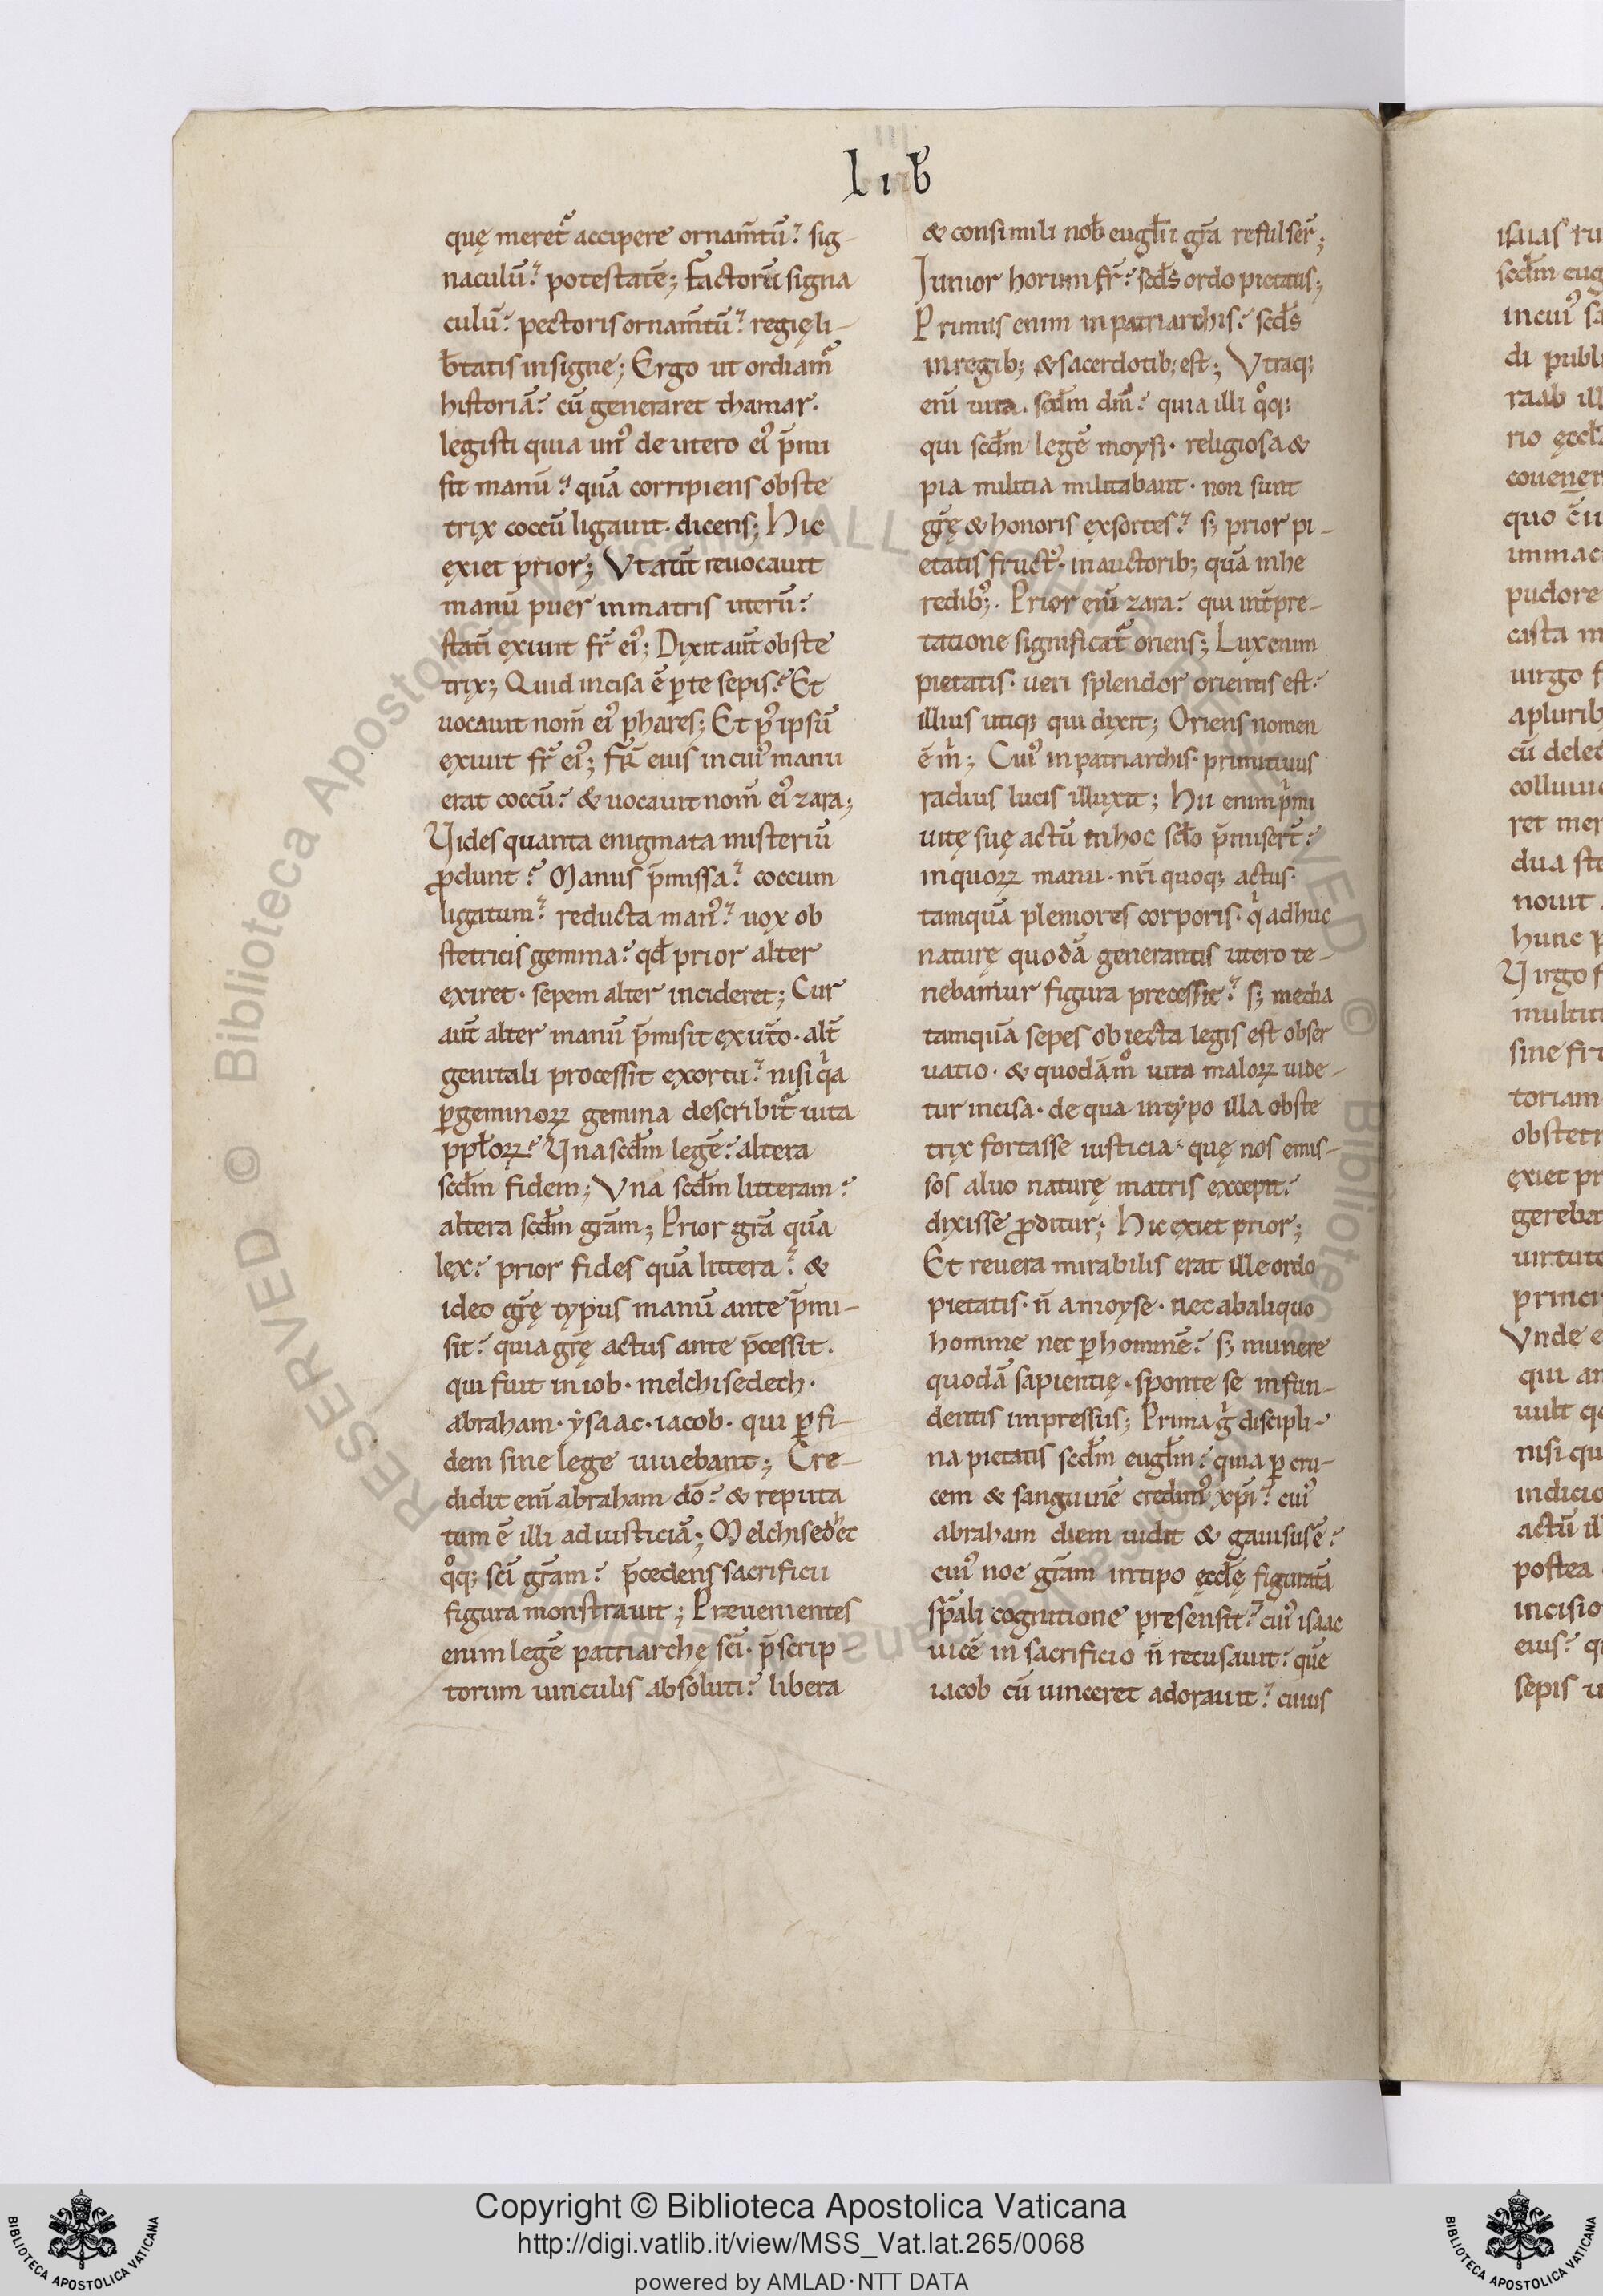 lib
quę meret᷑ accipere ornam̅tu̅? sig-
naculu̅? potestate̅; Factoru̅ signa
culu̅? pectoris ornam̅tu̅? regię li-
b̅tatis insigne; Ergo ut ordiam᷑
historia̅? cu̅ generaret thamar·
legisti quia unꝰ de utero eiꝰ p̅mi
sit manu̅? qua̅ corripiens obste
trix coccu̅ ligauit· dicens; Hic
exiet prior; Vt aut̅ reuocauit
manu̅ puer in matris uteru̅?
stati̅ exiuit fr̅ eiꝰ; Dixit aut̅ obste
trix; Quid incisa e̅ p̱te sepis? Et
uocauit nom̅ eiꝰ phares; Et pꝰ ipsu̅
exiuit fr̅ eiꝰ; fr̅ eius in cuiꝰ manu
erat coccu̅? & uocauit nom̅ eiꝰ zara;
Vides quanta enigmata misteriu̅
ꝓdunt? Manus p̅missa? coccum
ligatum? reducta manꝰ? uox ob
stetricis gemina? qd̅ prior alter
exiret· sepem alter incideret; Cur
aut̅ alter manu̅ p̅misit ex ut̅o· alt̅
genitali processit exortu? nisi qͥa
ꝑ geminoꝝ gemina describit᷑ uita
ppl̅oꝝ? Vna scd̅m lege̅? altera
scd̅m fidem; Vna scd̅m litteram?
altera scd̅m gr̅am; Prior gr̅a qua̅
lex? prior fides qua̅ littera? &
ideo gr̅ę typus manu̅ ante p̅mi-
sit? quia gr̅ę actus ante p̅cessit·
qui fuit in iob· melchisedech·
abraham· ẏsaac· iacob· qui ꝑ fi-
dem sine lege uiuebant; Cre-
didit eni̅ abraham do̅? & reputa
tum e̅ illi ad iusticia̅; Melchisedec
qͦq; sci̅ gr̅am? p̅cedens sacrificii
figura monstrauit; Præuenientes
enim lege̅ patriarchę sci̅· p̅scrip
torum uinculis absoluti? libera
& consimili nob̅ eugl̅ii gr̅a refulser̅;
Iunior horum fr̅? scd̅s ordo pietatis;
Primus enim in patriarchis? scd̅s
in regib; & sacerdotib; est; Vtraq;
eni̅ uita· scd̅m dm̅? quia illi qͦq;
qui scd̅m lege̅ moysi· religiosa &
pia militia militabant· non sunt
gr̅ę & honoris exsortes? s; prior pi-
etatis fructꝰ· in auctorib; qua̅ in he
redibꝰ;· Prior eni̅ zara? qui int̅pre-
tatione significat᷑ oriens; Lux enim
pietatis· ueri splendor orientis est?
illius utiq; qui dixit; Oriens nomen
e̅ m̅; Cuiꝰ in patriarchis· primitiuus
radius lucis illuxit; Hii enim pͥmi
uitę suę actu̅ in hoc scl̅o p̅misert̅?
in quoꝝ manu· nr̅i quoq; actus·
tamqua̅ pleniores corporis· qͥ adhuc
naturę quoda̅ generantis utero te-
nebamur figura precessit? s; media
tamqua̅ sepes obiecta legis est obser
uatio· & quoda̅mͦ uita maloꝝ uide-
tur incisa· de qua in tẏpo illa obste
trix fortasse iusticia· quę nos emis-
sos aluo naturę matris excepit?
dixisse ꝓditur; Hic exiet prior;
Et reuera mirabilis erat ille ordo
pietatis· n̅ a moyse· nec ab aliquo
homine nec ꝑ homine̅? s; munere
quoda̅ sapientię· sponte se infun-
dentis impressus; Prima gͥ discipli-
na pietatis scd̅m eugl̅m? quia ꝑ cru-
cem & sanguine̅ credimꝰ xp̅i? cuiꝰ
abraham diem uidit & gauisus e̅?
cuiꝰ noe gr̅am in tipo ęccl̅ę figurata̅
sp̅ali cognitione presensit? cuiꝰ isaac
uice̅ in sacrificio n̅ recusauit? que̅
iacob cu̅ uinceret adorauit? cuius
Copyright © Biblioteca Apostolica Vaticana
http://digi.vatlib.it/view/MSS_Vat.lat.265/0068
powered by AMLAD·NTT DATA
BIBLIOTECA APOSTOLICA VATICANA
BIBLIOTECA APOSTOLICA VATICANA